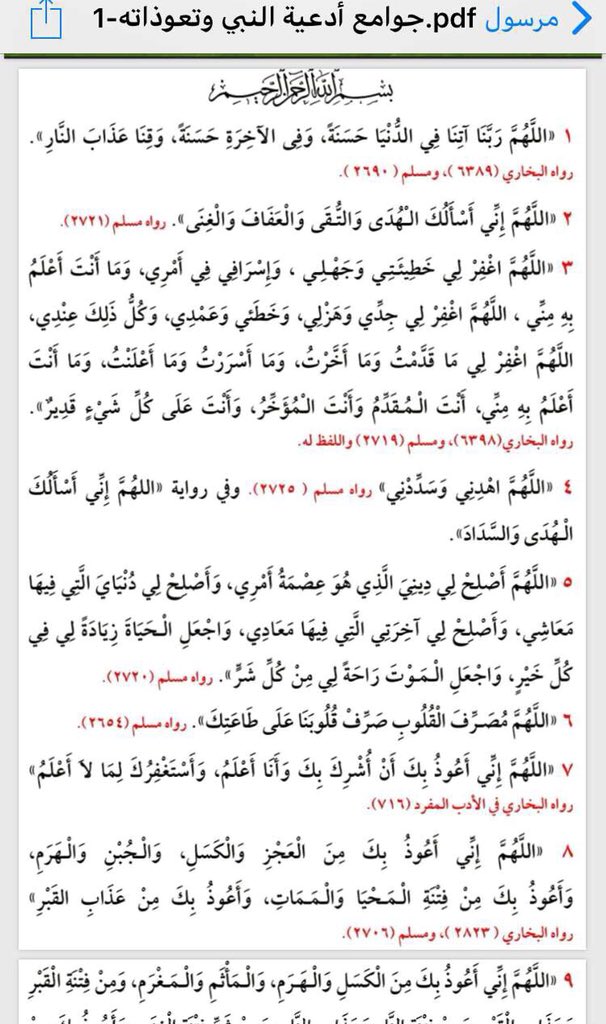 مرسول 1-جوامع أدعية النبي وتعوذاته.pdf
بسم الله الرحمن الرحيم
١ «اللَّهُمَّ رَبَّنَا آتِنَا فِي الدُّنْيَا حَسَنَةً، وَفِي الآخِرَةِ حَسَنَةً، وَقِنَا عَذَابَ النَّارِ».
رواه البخاري (٦٣٨٩)، ومسلم (٢٦٩٠).
٢ «اللَّهُمَّ إِنِّي أَسْأَلُكَ الْهُدَى وَالتُّقَى وَالْعَفَافَ وَالْغِنَى». رواه مسلم (٢٧٢١).
٣ «اللَّهُمَّ اغْفِرْ لِي خَطِيئَتِي وَجَهْلِي ، وَإِسْرَافِي فِي أَمْرِي، وَمَا أَنْتَ أَعْلَمُ
بِهِ مِنِّي ، اللَّهُمَّ اغْفِرْ لِي جِدِّي وَهَزْلِي، وَخَطَئِي وَعَمْدِي، وَكُلُّ ذَلِكَ عِنْدِي،
اللَّهُمَّ اغْفِرْ لِي مَا قَدَّمْتُ وَمَا أَخَّرْتُ، وَمَا أَسْرَرْتُ وَمَا أَعْلَنْتُ، وَمَا أَنْتَ
أَعْلَمُ بِهِ مِنِّي، أَنْتَ الْمُقَدِّمُ وَأَنْتَ الْمُؤَخِّرُ، وَأَنْتَ عَلَى كُلِّ شَيْءٍ قَدِيرٌ».
رواه البخاري(٦٣٩٨)، ومسلم (٢٧١٩) واللفظ له.
٤ «اللَّهُمَّ اهْدِنِي وَسَدِّدْنِي» رواه مسلم ( ٢٧٢٥). وفي رواية «اللهُمَّ إِنِّي أَسْأَلُكَ
الْهُدَى وَالسَّدَادَ».
٥ «اللَّهُمَّ أَصْلِحْ لِي دِينِيَ الَّذِي هُوَ عِصْمَةُ أَمْرِي، وَأَصْلِحْ لِي دُنْيَايَ الَّتِي فِيهَا
مَعَاشِي، وَأَصْلِحْ لِي آخِرَتِي الَّتِي فِيهَا مَعَادِي، وَاجْعَلِ الْحَيَاةَ زِيَادَةً لِي فِي
كُلِّ خَيْرٍ، وَاجْعَلِ الْمَوْتَ رَاحَةً لِي مِنْ كُلِّ شَرٍّ». رواه مسلم (٢٧٢٠).
٦ «اللَّهُمَّ مُصَرِّفَ الْقُلُوبِ صَرِّفْ قُلُوبَنَا عَلَى طَاعَتِكَ». رواه مسلم (٢٦٥٤).
٧ «اللَّهُمَّ إِنِّي أَعُوذُ بِكَ أَنْ أُشْرِكَ بِكَ وَأَنَا أَعْلَمُ، وَأَسْتَغْفِرُكَ لِمَا لاَ أَعْلَمُ»
رواه البخاري في الأدب المفرد (٧١٦).
٨ «اللَّهُمَّ إِنِّي أَعُوذُ بِكَ مِنَ الْعَجْزِ وَالْكَسَلِ، وَالْجُبْنِ وَالْهَرَمِ،
وَأَعُوذُ بِكَ مِنْ فِتْنَةِ الْمَحْيَا وَالْمَمَاتِ، وَأَعُوذُ بِكَ مِنْ عَذَابِ القَبْرِ»
رواه البخاري ( ٢٨٢٣ )، ومسلم (٢٧٠٦).
٩ «اللَّهُمَّ إِنِّي أَعُوذُ بِكَ مِنَ الْكَسَلِ وَالْهَرَمِ، وَالْمَأْثَمِ وَالْمَغْرَمِ، وَمِنْ فِتْنَةِ الْقَبْرِ